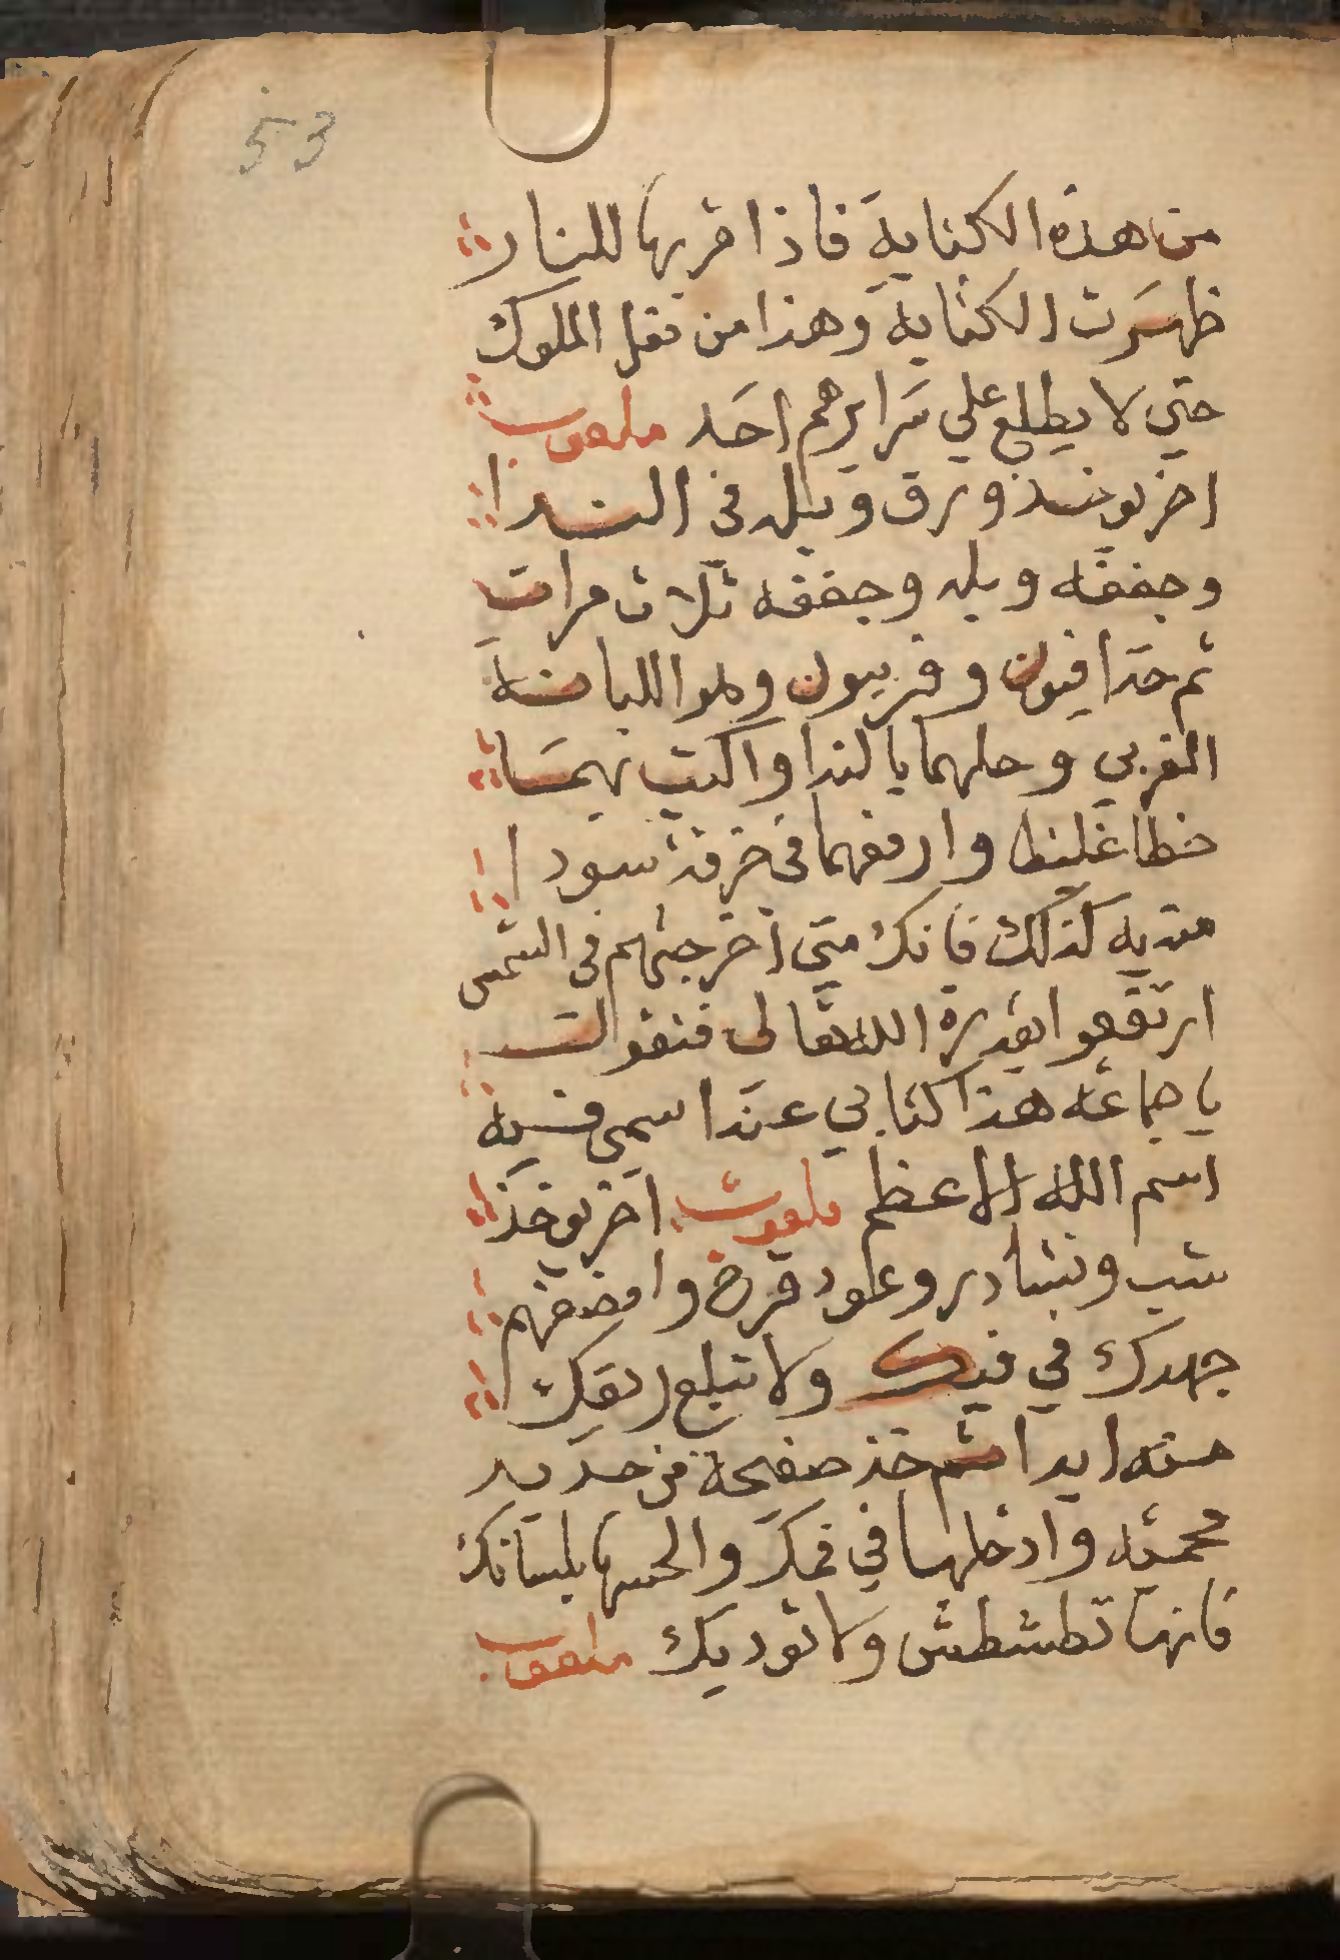 53
من هذه الكتابة فاذا قربها للنار
ظهرت الكتابة وهذا من نقل الملوك
حتي لا يطلع علي سرايرهم احد ملعوب
اخر يوخذ ورق وبله في الندا
وجففه وبله وجففه ثلاث مرات
ثم خذ افيون وفربيون واللبانة
المغربي وحلهما بالندا واكتب بهما
خطا غليظ وارفعهما في خرقة سودا
مندية كذلك فانك متي اخرجتهم في الشمس
ارتفعوا بقدرة الله تعالى فتقول
يا جماعه هذا كتابي عند اسمي فيه
اسم الله الاعظم ملعوب اخر يوخذ
شب ونشادر وعود قرح وامضغهم
جهدك في فيك ولا تبلع ريقك
منه ابدا ثم خذ صفيحة من حديد
محميه وادخلها في فمك والحسها بلسانك
فانها تطشطش ولا توديك ملعوب